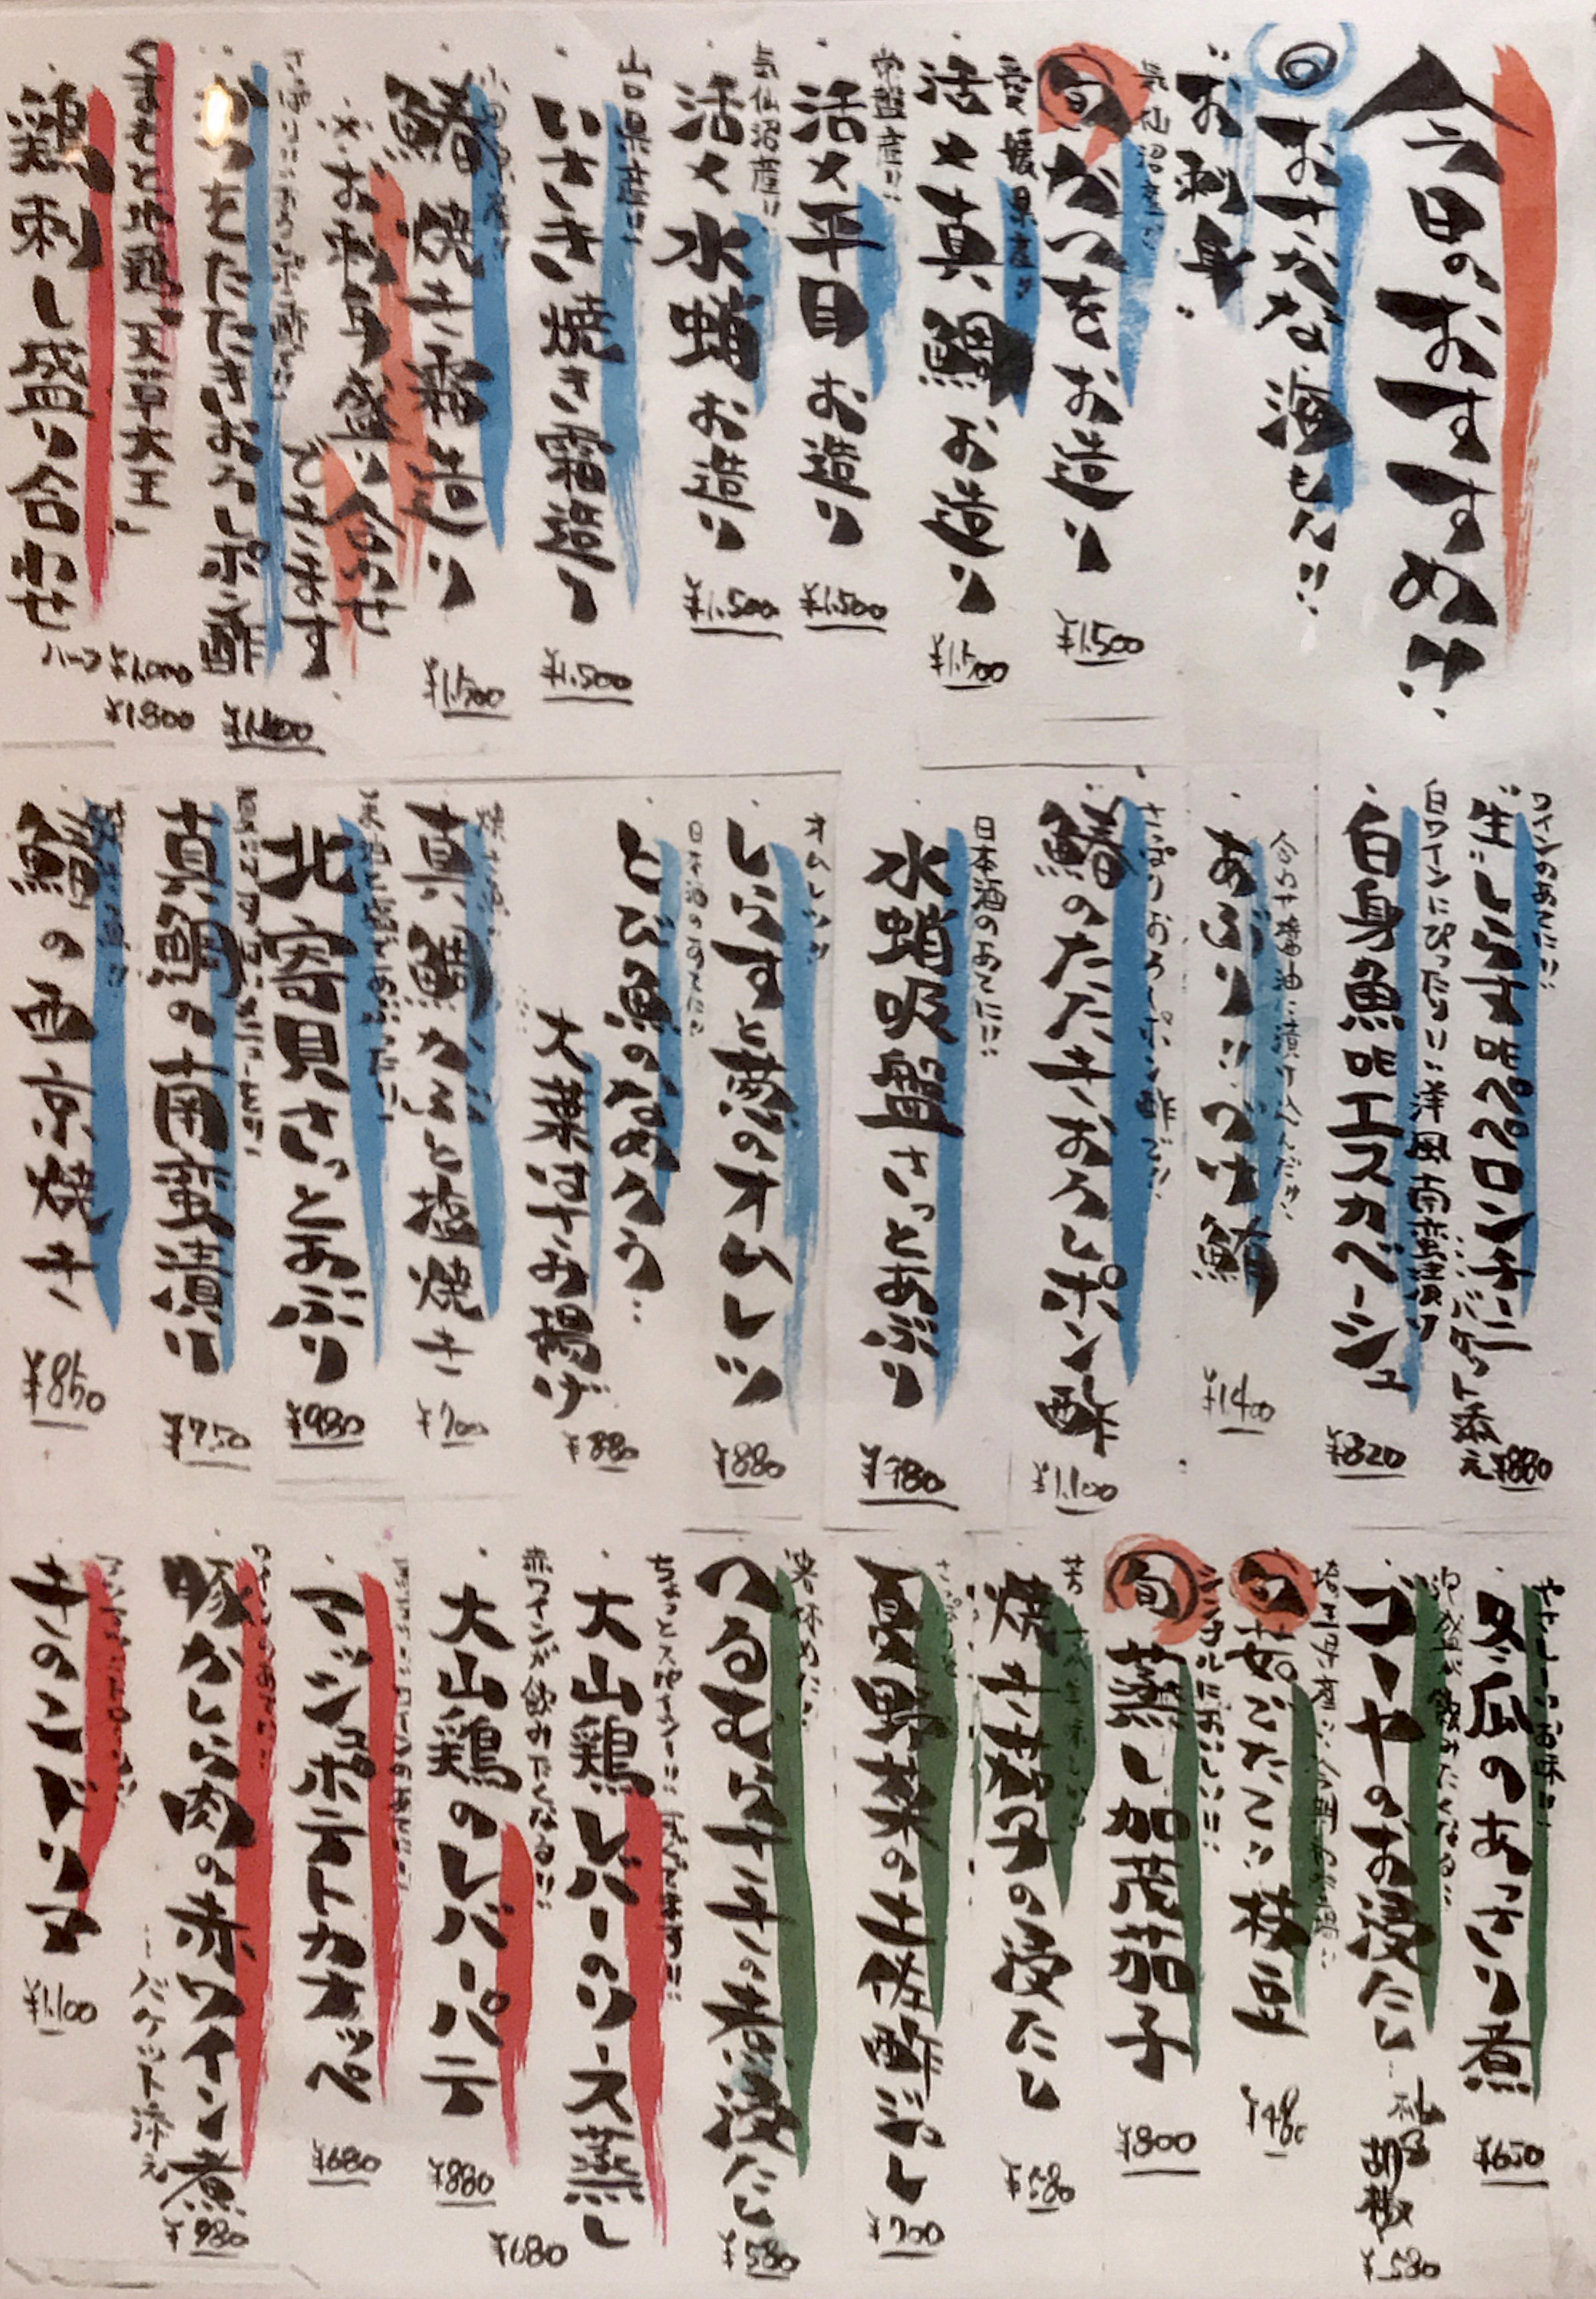 今日のおすすめ!!
◎おさかな 海もん!!
お刺身
気仙沼産!!
旬 かつをお造り
¥1.500
愛媛県産!!
活〆真鯛お造り
¥1.500
活〆平目お造り
¥1.500
気仙沼産!!
活〆水蛸お造り
¥1.500
山口県産!!
いさき焼き霜造り
¥1.500
鰆焼き霜造り
¥1.500
※お刺身盛り合わせ
できます
かつをたたきおろしポン酢
くまもと地鶏「天草大王」
鶏刺し盛り合わせ
ハーフ ¥1.000
¥1.800
ワインのあてに!!
生しらす咋ペペロンチーニ
バケット添え
¥880
白ワインにぴったり!! 洋風南蛮漬け
白身魚咋エスカベーシュ
¥820
あぶり!!づけ鮪
¥1400
さっぱりおろしポン酢で!!
鰆のたたきおろしポン酢
¥1.100
日本酒のあてに!!
水蛸吸盤さっとあぶり
¥780
オムレツ!!
しらすと葱のオムレツ
¥880
日本酒のあてに!!
とび魚のなめろう
大葉はさみ揚げ
¥880
真鯛かぶと塩焼き
¥700
北寄貝さっとあぶり
¥980
真鯛の南蛮漬け
¥750
鰆の西京焼き
¥850
冬瓜のあっさり煮
¥650
ゴーヤのお浸し
胡椒
¥580
旬 茹でたて!!枝豆
¥480
シンプルにおいしい!!
旬 蒸し加茂茄子
¥800
焼き茄子の浸し
¥580
夏野菜の土佐酢浸し
¥700
つるむらさきの煮浸し
¥580
大山鶏レバーのソース蒸し
¥680
赤ワインが飲みたくなる!!
大山鶏のレバーパテ
¥880
アンショポテトカナッペ
¥680
豚かしら肉の赤ワイン煮
バケット添え
¥980
きのこドリア
¥1.100